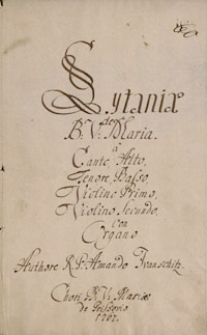 Lytaniæ
de
B: V: Maria.
a
Canto Alto,
Tenore, Basso,
Violino Primo,
Violino Secundo,
Con
Organo
Authore R. P. Amando Ivanschitz.
Chori B. V. Mariæ
de